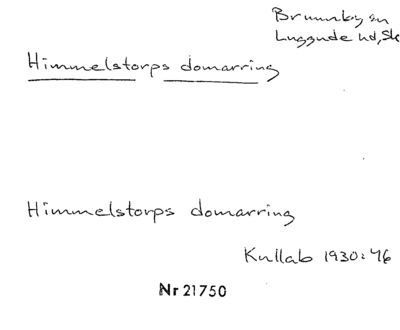 Brunnby sn
Luggude hd, Sk
Himmelstorps domarring
Himmelstorps domarring
Kullab 1930:46
Nr 21750